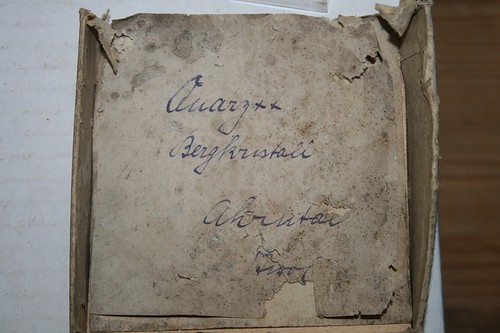 Quarz××
Bergkristall
Ahrntal
Tirol